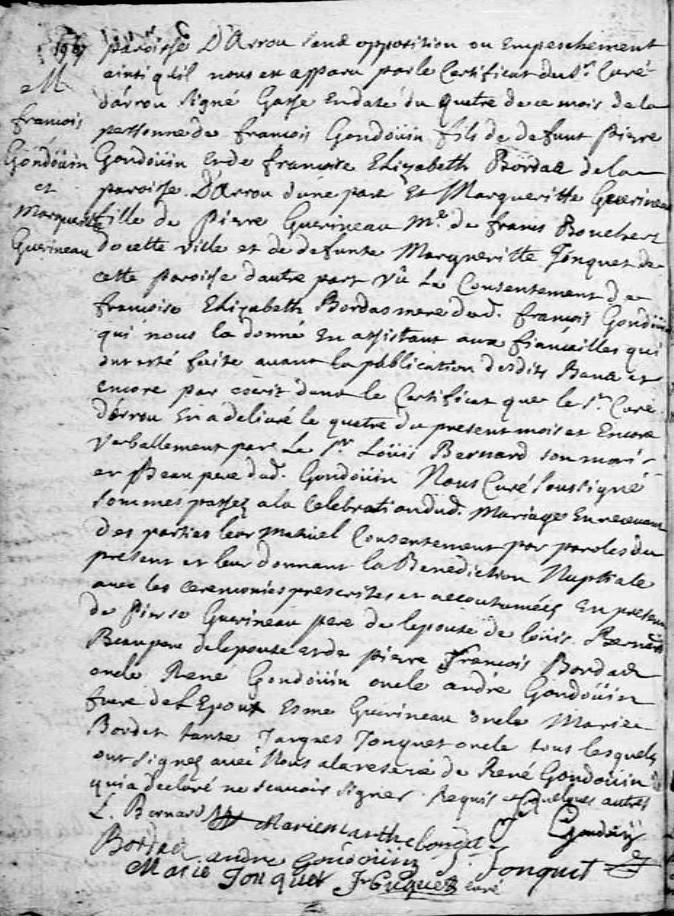 M
francois
Gondoüin
et
Marguerite
Guerineau
paroisse D'Arrou sans opposition ou Empeschement
ainsi quil nous est apparu par le Certificat du Sr. Curé
d'arrou signé Gasse En date du quatre de ce mois de la
personne de francois Gondoüin fils de defunt Pierre
Gondoüin et de francoise Elizabeth Bordas de la
paroisse D'Arrou d'une part Et Margueritte Guerineau
fille de Pierre Guerineau Me. de francs Bouchers
de cette ville et de defunte Margueritte Jonquet de
cette paroisse d'autre part vû Le Consentement de
francoise Elizabeth Bordas mere dud. francois Gondoüin
qui nous la donné En assistant aux fiancailles qui
ont eté faite avant la publication desdits Bans et
encore par écrit dans le Certificat que le Sr. Curé
d'Arrou En a delivré le quatre du present mois et Encore
verballement par Le Sr. Loüis Bernard son mari
et Beau pere dud. Gondoüin Nous Curé soussigné
sommes passez a la Celebration dud. Mariage En recevant
des parties leur Mutuel Consentement par paroles du
present et leur donnant la Benediction Nuptiale
avec les Ceremonies prescrites et accoutumées En presence
de Pierre Guerineau pere de lepouse de loüis Bernard
Beau pere de lepoux et de pierre francois Bordas
oncle René Gondoüin oncle andré Gondoüin
frere de l'Epoux Esme Guerineau oncle Marie
Bordas tante Jacques Jonquet oncle tous lesquels
ont signez avec Nous a la reserve de René Gondoüin
qui a declaré ne scavoir signer Requis et quelques autres
L. Bernard Marie Marthe Gondoüin
Bordas andre Gondouin J. Jonquet
Marie Jonquet curé